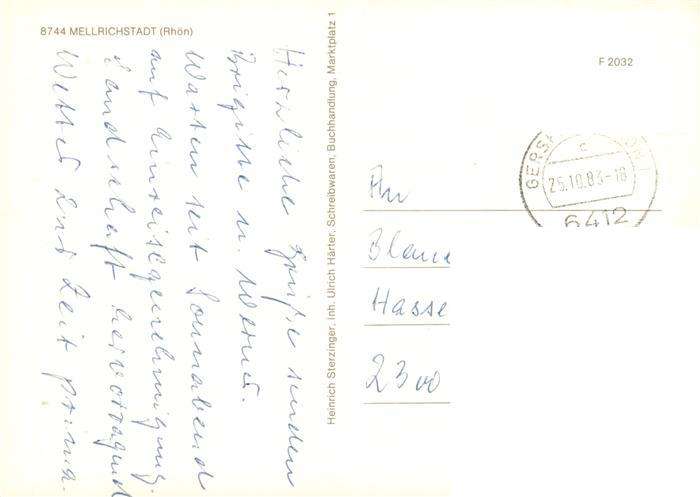 8744 MELLRICHSTADT (Rhön)
Herzliche Grüße senden
Brigitte u. Werner.
Warten seit Sonnabend
auf Einreisegenehmigung.
Landschaft hervorragend
Wetter zur Zeit prima.
Heinrich Sterzinger, Inh. Ulrich Härter, Schreibwaren, Buchhandlung, Marktplatz 1
F 2032
GERSF
c
25.10.83-18
6412
An
Hasse
2300